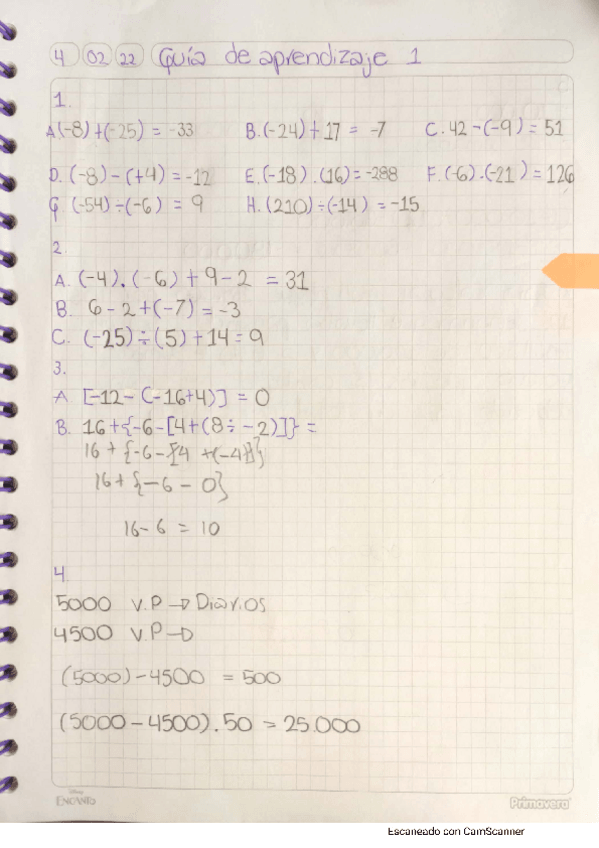 4 02 22 Guía de aprendizaje 1
1.
A (-8)+(-25) = -33 B.(-24)+17 = -7 C. 42-(-9) = 51
D. (-8)-(+4) = -12 E.(-18).(16)=-288 F.(-6).(-21) = 126
G (-54)÷(-6) = 9 H.(210)÷(-14) = -15
2.
A. (-4).(-6)+9-2 = 31
B. 6-2+(-7) = -3
C. (-25)÷(5)+14=9
3.
A [-12-(-16+4)] = 0
B. 16+{-6-[4+(8÷-2)]} =
16 + {-6-[4 +(-4)]}
16+{-6-0}
16-6 = 10
4.
5000 V.P → Diarios
4500 V.P →D
(5000)-4500 = 500
(5000-4500).50 = 25.000
Disney
ENCANTO Primavera
Escaneado con CamScanner